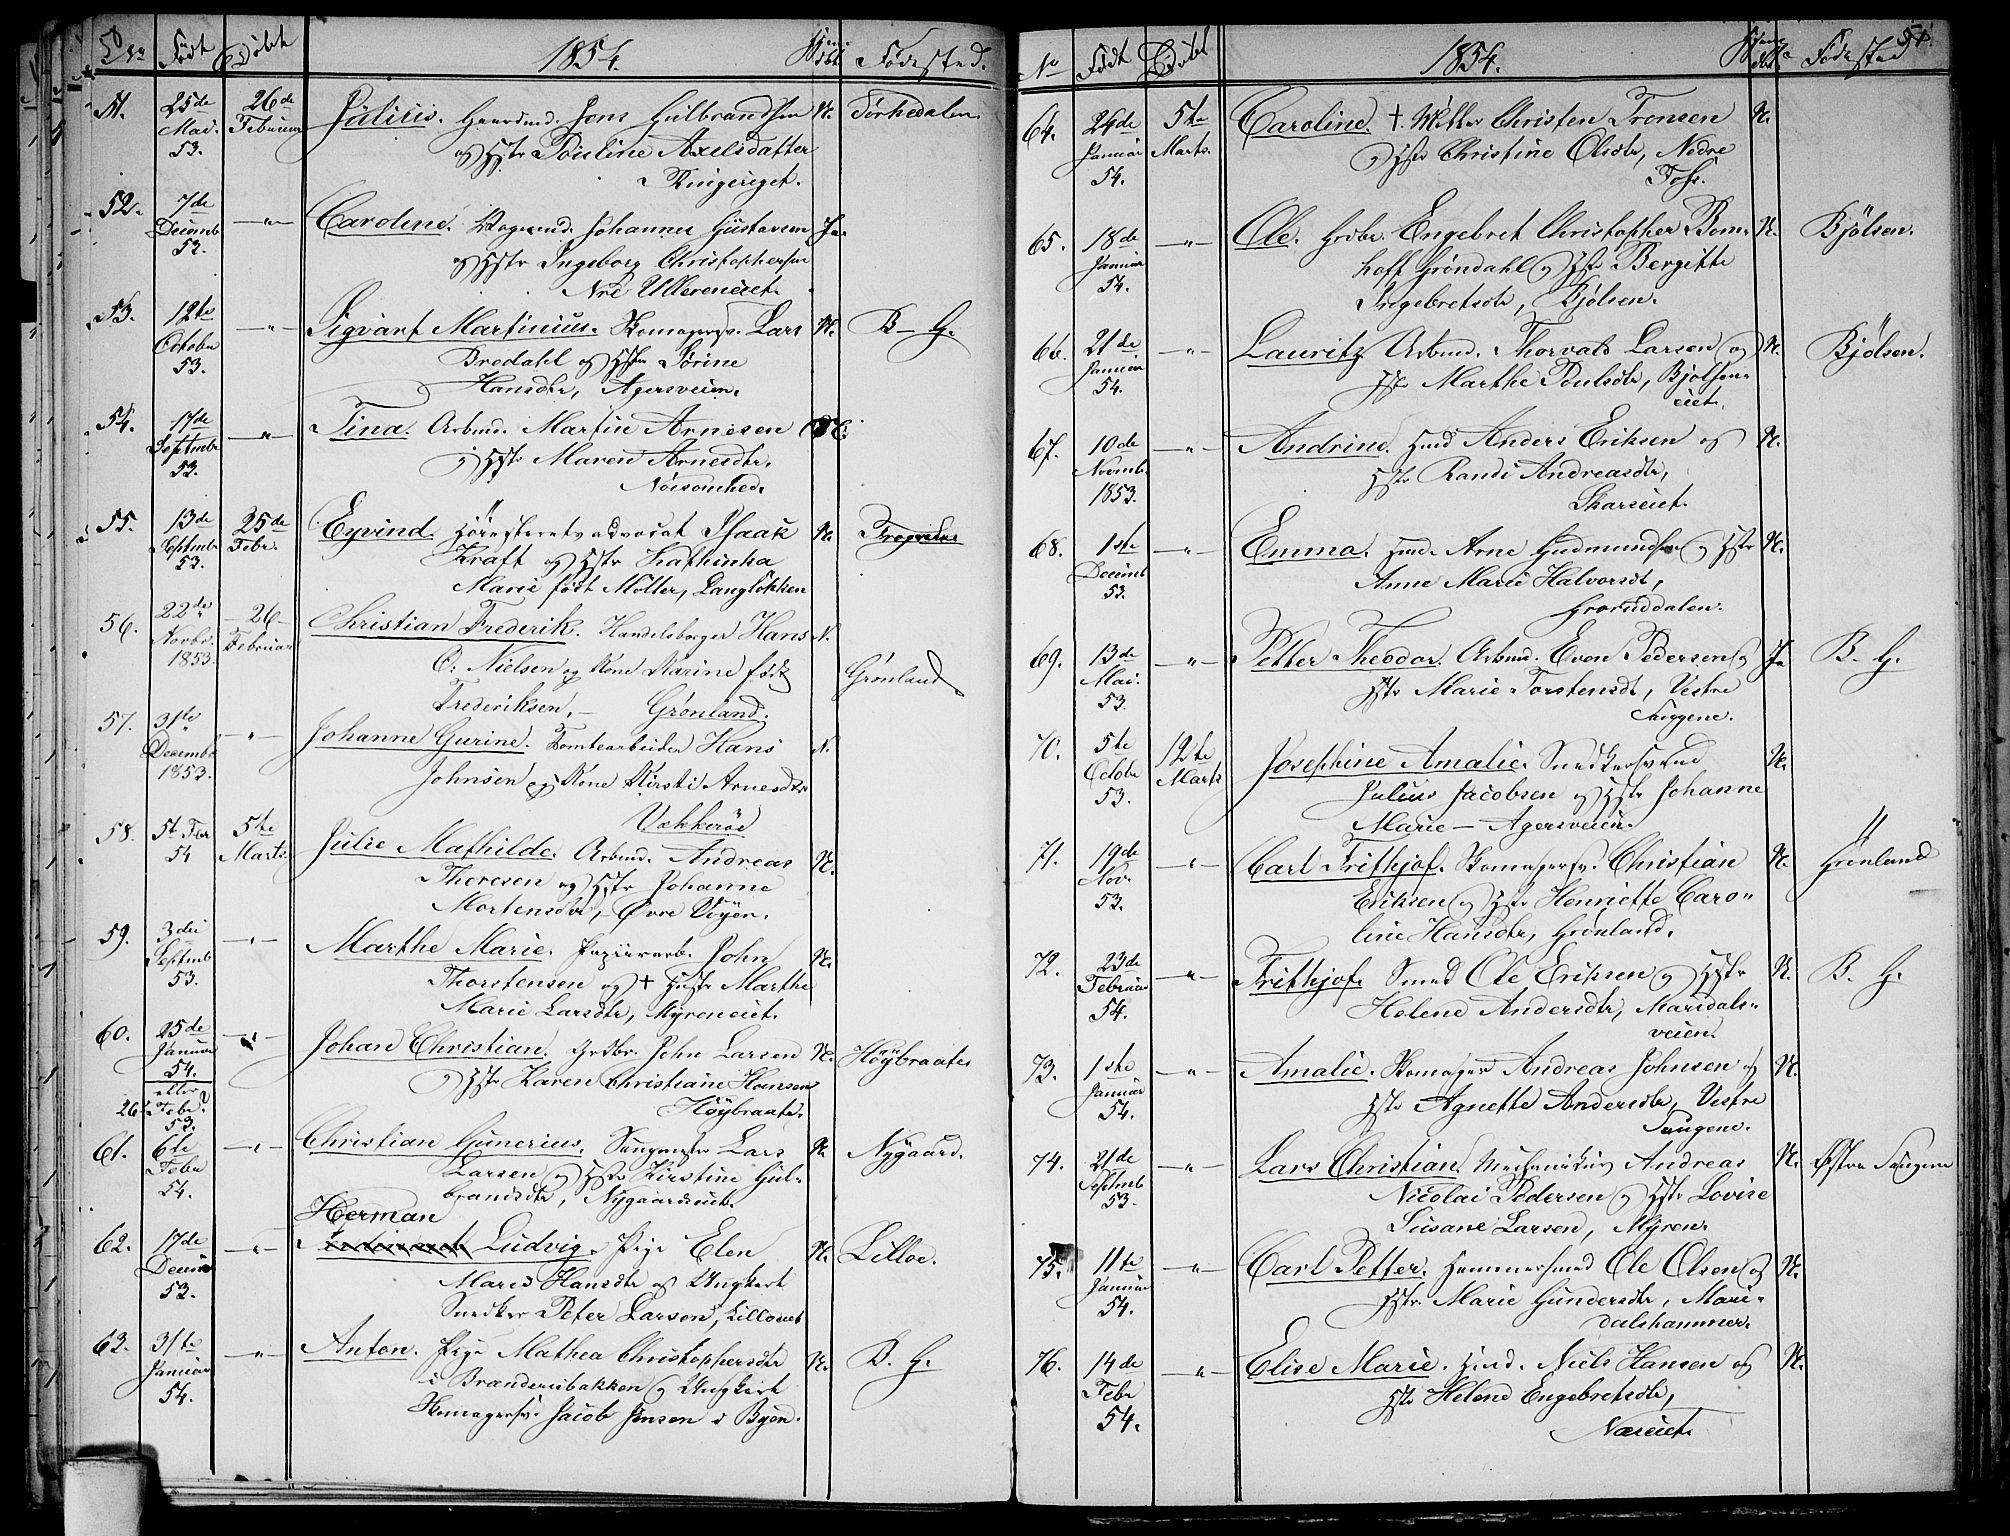 50
No Født Døbt 1854. Hjemdøbt Fødested.
51. 25de Mai 53. 26de Februar Julius. Gaardmd. Jens Gulbrandsen N. Sørkedalen
og Hstr Pouline Axelsdatter
Ringeriget.
52. 7de Decemb 53. —"— Caroline. Vognmd. Johannes Gustavsen Ja.
og Hstr Ingeborg Christophersen
Nre Ullereneiet.
53. 12te October 53. —"— Sigvart Martinius. Skomagersv. Lars N. B– G.
Bredahl og Hstr Sørine
Hansdtr, Agersveien.
54. 17de Septmbr 53. —"— Tina. Arbmd. Martin Arnesen
og Hstr Maren Arnesdtr.
Nøisomhed.
55. 13de Septmbr 53. 25de Febr. Eyvind. Høiesteretsadvocat Isaak N.
Kraft og Hstr Kathinka
Marie født Møller, Langløkken
56. 22de Novbr. 1853. 26 Februar Christian Frederik. Handelsborger Hans N.
C. Nielsen og Kone Marine født Grønland
Frederiksen, – Grønland.
57. 31te Decembr 1853. —"— Johanne Gurine. Tomtearbeider Hans N.
Johnsen og Kone Kirsti Arnesdtr
Vækkerøe
58. 5te Febr 54 5te Marts. Julie Mathilde. Arbmd. Andreas N.
Thoresen og Hstr Johanne
Mortensdtr, Øvre Vøyen.
59. 3die Septmb 53. —"— Marthe Marie. Papiirarb. John N.
Thorstensen og + Hustr Marthe
Marie Larsdtr, Myreneiet.
60. 25de Januar 54. eller 26 Febr? 53. —"— Johan Christian. Grdbr. John Larsen N. Høybraaten
og Hstr Karen Christiane Hansen
Høybraaten.
61. 6te Febr 54. —"— Christian Gunerius. Sangmester Lars N. Nygaard.
Larsen og Hstr Kirstine Gul-
brandsdtr, Nygaardseiet.
Herman
62. 17de Decemb 53. —"— Ludvig. Pige Elen N. Lilloe.
Marie Hansdtr og Ungkarl
Snedker Peter Larsen, Lilloeiet
63. 31te Januar 54. —"— Anton. Pige Mathea Christophersdtr N. B. G.
i Brænderibakken og Ungkarl
Skomagersv. Jacob Jensen i Byen.
51.
No Født Døbt 1854. Hjemdøbt Fødested
64. 24de Januar 54. 5te Marts. Caroline. + Møller Christen Tronsen N.
og Hstr Christine Olsdtr, Nedre
Foss.
65. 18de Januar 54. —"— Ole. Grdbr. Engebret Christopher Bom- N. Bjølsen.
hoff Grøndahl og Hstr Bergitte
Ingebretsdtr, Bjølsen.
66. 21de Januar 54. —"— Lauritz Arbmd. Thorvald Larsen og N. Bjølsen.
Hstr Marthe Poulsdtr, Bjølsen-
eiet.
67. 10de Novmb. 1853. —"— Andrine. Hmd Anders Eriksen og N.
Hstr Randi Andreasdtr,
Skarseiet.
68. 1ste Decemb 53. —"— Emma. Hmd. Arne Gudmundsen og Hstr N.
Anne Marie Halvorsdt,
Groruddalen.
69. 13de Mai. 53. —"— Petter Theodor. Arbmd. Even Pedersen og Ja B. G.
Hstr Marie Torstensdt, Vestre
Saugene.
70. 5te Octobr 53. 12te Marts Josephine Amalie. Snedkersvend N.
Julius Jacobsen og Hstr Johanne
Marie – Agersveien.
71. 19de Nov. 53. —"— Carl Frithjof. Skomagersv. Christian N. Grønland
Eriksen og Hstr Henriette Caro-
line Hansdtr, Grønland.
72. 23de Februar 54. —"— Frithjof. Smed Ole Eriksen og Hstr N. B. G.
Helene Andersdtr, Maridals-
veien.
73. 1ste Januar 54. —"— Amalie. Skomager Andreas Johnsen og N.
Hstr Agnette Andersdtr, Vestre
Saugene.
74. 21de Septmb 53. —"— Lars Christian. Mechanikus Andreas N. Østre Saugene
Nicolai Pedersen og Hstr Lovise
Susane Larsen, Myren.
75. 11te Januar 54. —"— Carl Petter. Hammersmed Ole Olsen og N.
Hstr. Marie Gundersdtr, Mari-
dalshammer.
76. 14de Febr 54. —"— Elise Marie. Hmd. Niels Hansen og N.
Hstr Helene Engebretsdtr,
Næseiet